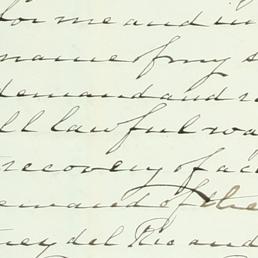 for me and in
name of my s
demand and r
ll lawful wa
recovery of ac
emand of the
ney del Rio and